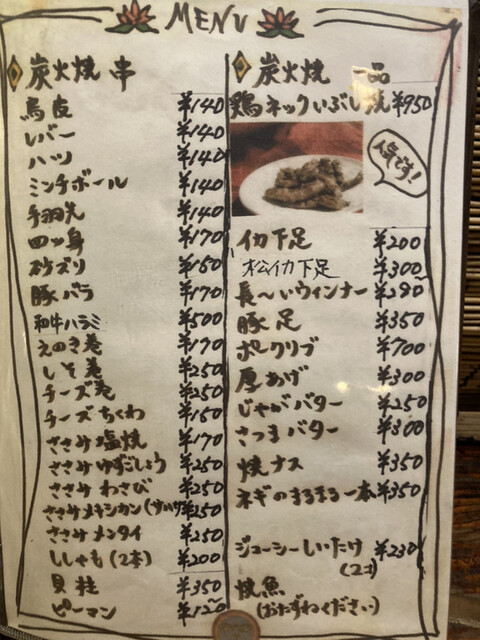 MENU
炭火焼 串
鳥皮 ¥140
レバー ¥140
ハツ ¥140
ミンチボール ¥140
手羽先 ¥140
四ツ身 ¥170
砂ズリ ¥150
豚バラ ¥170
和牛ハラミ ¥500
えのき巻 ¥190
しそ巻 ¥250
チーズ巻 ¥250
チーズちくわ ¥150
ささみ塩焼 ¥170
ささみゆずこしょう ¥250
ささみ わさび ¥250
ささみメキシカン ¥250
ささみ メンタイ ¥250
ししゃも(2本) ¥200
貝柱 ¥350
ピーマン ¥120
炭火焼 一品
鶏ネックいぶし焼 ¥950
人気です!
イカ下足 ¥200
松イカ下足 ¥300
長〜いウィンナー ¥290
豚足 ¥350
ポークリブ ¥700
厚あげ ¥300
じゃがバター ¥250
さつまバター ¥300
焼ナス ¥350
ネギのまるまる一本 ¥350
ジューシーしいたけ ¥230
(2コ)
焼魚
(おたずねください)